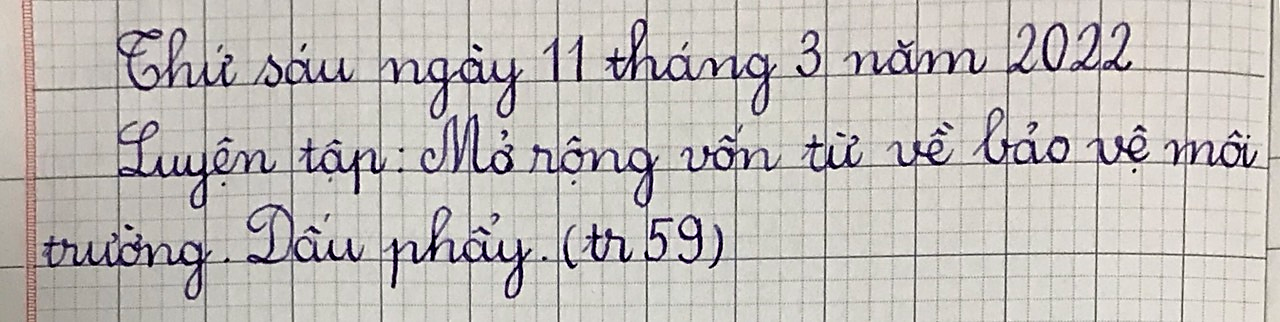 Thứ sáu ngày 11 tháng 3 năm 2022
Luyện tập: Mở rộng vốn từ về bảo vệ môi
trường. Dấu phẩy. (tr 59)